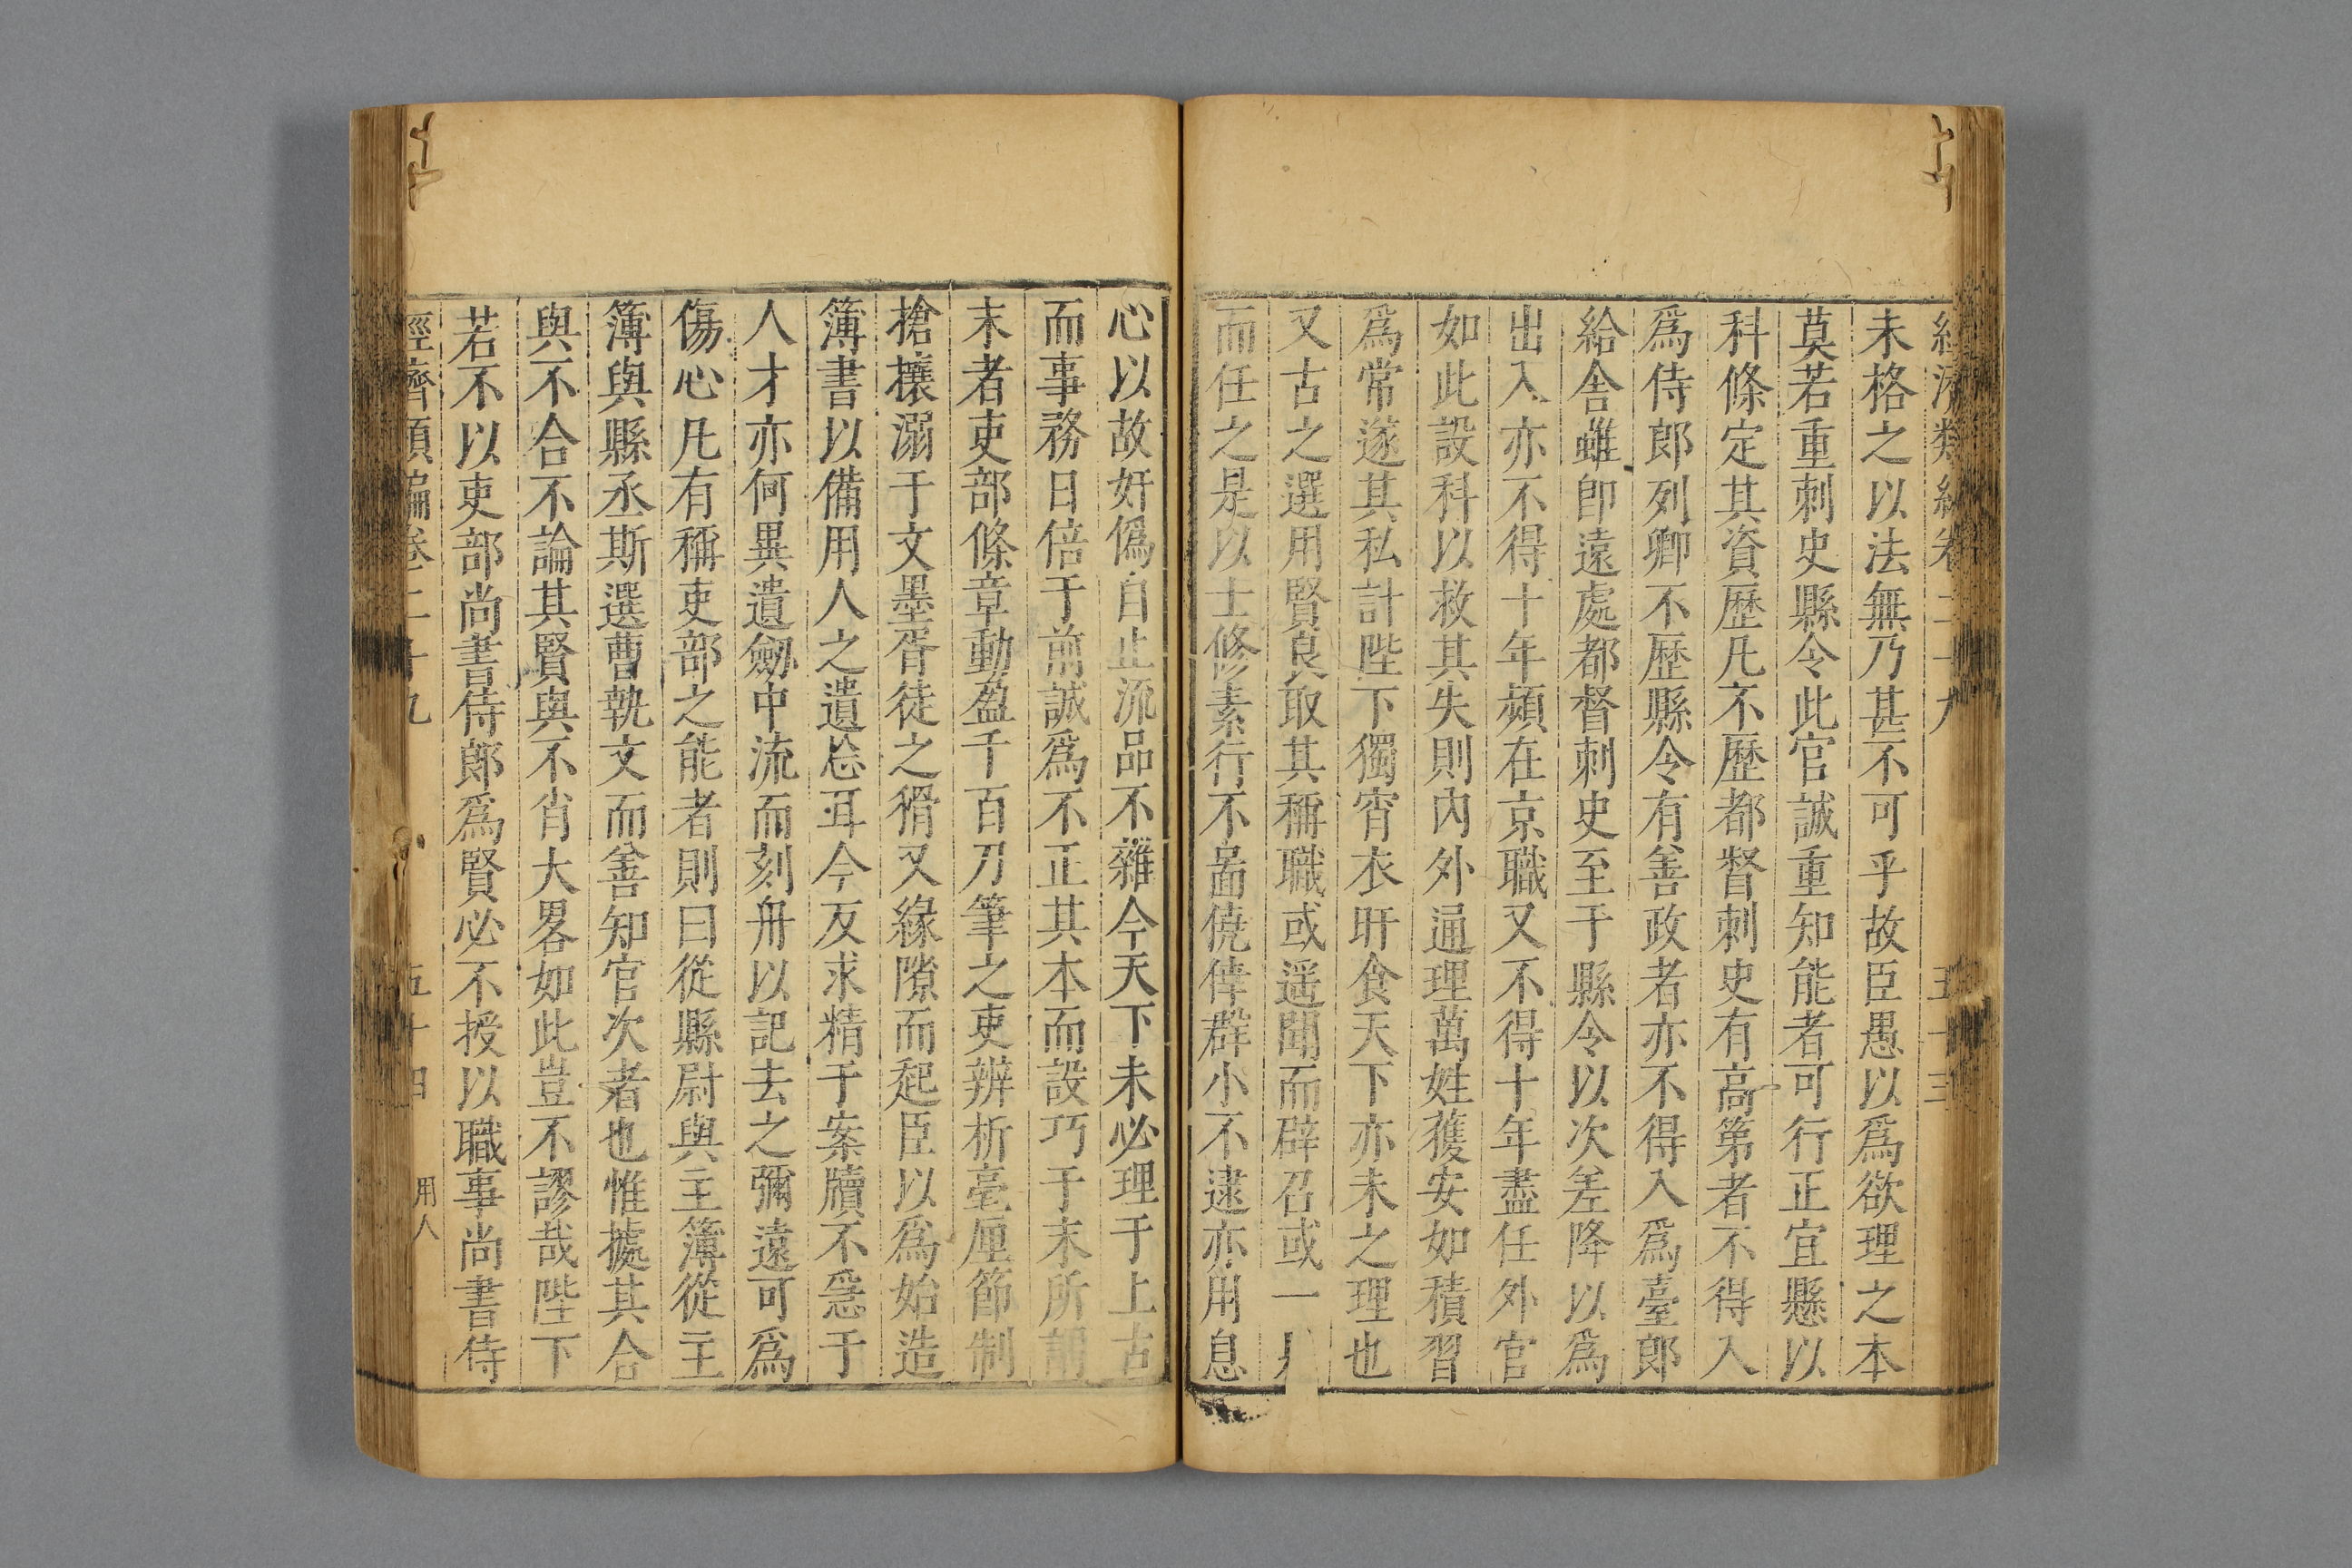 未格之以法無乃甚不可乎故臣愚以爲欲理之本
莫若重刺史縣令此官誠重知能者可行正宜懸以
科條定其資歷凡不歷都督刺史有高第者不得入
爲侍郎列卿不歷縣令有善政者亦不得入爲臺郎
給舍雖卽遠處都督刺史至于縣令以次差降以爲
出入亦不得十年頻在京職又不得十年盡任外官
如此設科以救其失則內外通理萬姓獲安如積習
爲常遂其私計陛下獨宵衣旰食天下亦未之理也
又古之選用賢良取其稱職或遥聞而辟召或一
而任之是以士修素行不啚僥倖群小不逮亦用息
心以故奸僞自止流品不雜今天下未必理于上古
而事務日倍于前誠爲不正其本而設巧于末所謂
末者吏部條章動盈千百刀筆之吏辨析毫厘節制
搶攘溺于文墨胥徒之猾又緣隙而起臣以爲始造
簿書以備用人之遺忘耳今反求精于案牘不急于
人才亦何異遺劒中流而刻舟以記去之彌遠可爲
傷心凡有稱吏部之能者則曰從縣尉與主簿從主
簿與縣丞斯選曹執文而善知官次者也惟據其合
與不合不論其賢與不肖大畧如此豈不謬哉陛下
若不以吏部尚書侍郎爲賢必不授以職事尚書侍
經濟類編卷二十九 五十四 用人